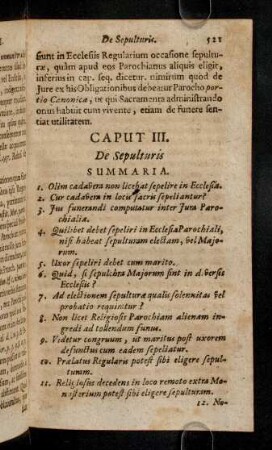 De Sepulturis. 521
fiunt in Ecclesiis Regularium occasione sepultu-
ræ, quàm apud eos Parochianus aliquis eligit,
inferius in cap. seq. dicetur. nimirum quòd de
Jure ex his Obligationibus debeatur Parocho por-
tio Canonica, ut qui Sacramenta administrando
onus habuit cum vivente, etiam de funere sen-
tiat utilitatem.
CAPUT III.
De Sepulturis
SUMMARIA.
1. Olim cadavera non licebat sepelire in Ecclesiæ.
2. Cur cadavera in locis sacris sepeliantur?
3. Jus funerandi computatur inter Jura Paro-
chialia.
4. Quilibet debet sepeliri in Ecclesia Parochiali,
nisi habeat sepulturam electam, vel Majo-
rum.
5. Uxor sepeliri debet cum marito.
6. Quid, si sepulchra Majorum sint in diversis
Ecclesiis?
7. Ad electionem sepulturæ qualis solennitas vel
probatio requiratur?
8. Non licet Religiosis Parochiam alienam in-
gredi ad tollendum funus.
9. Videtur congruum, ut maritus post uxorem
defunctus cum eadem sepeliatur.
10. Prælatus Regularis potest sibi eligere sepul-
turam.
11. Religiosus decedens in loco remoto extra Mo-
nasterium potest sibi eligere sepulturam.
12. No-